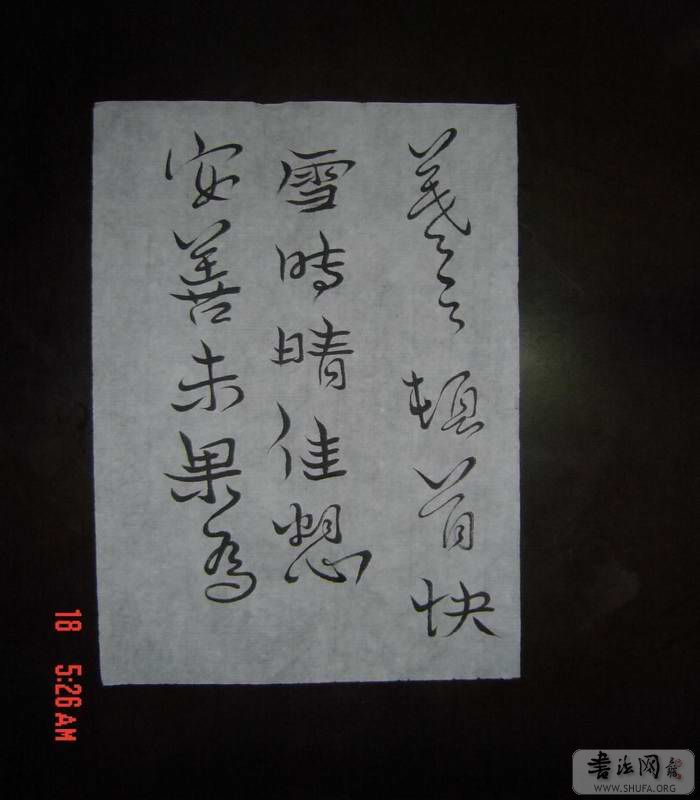 羲之頓首快
雪時晴佳想
安善未果為
18 5:26AM
书法网
WWW.SHUFA.ORG